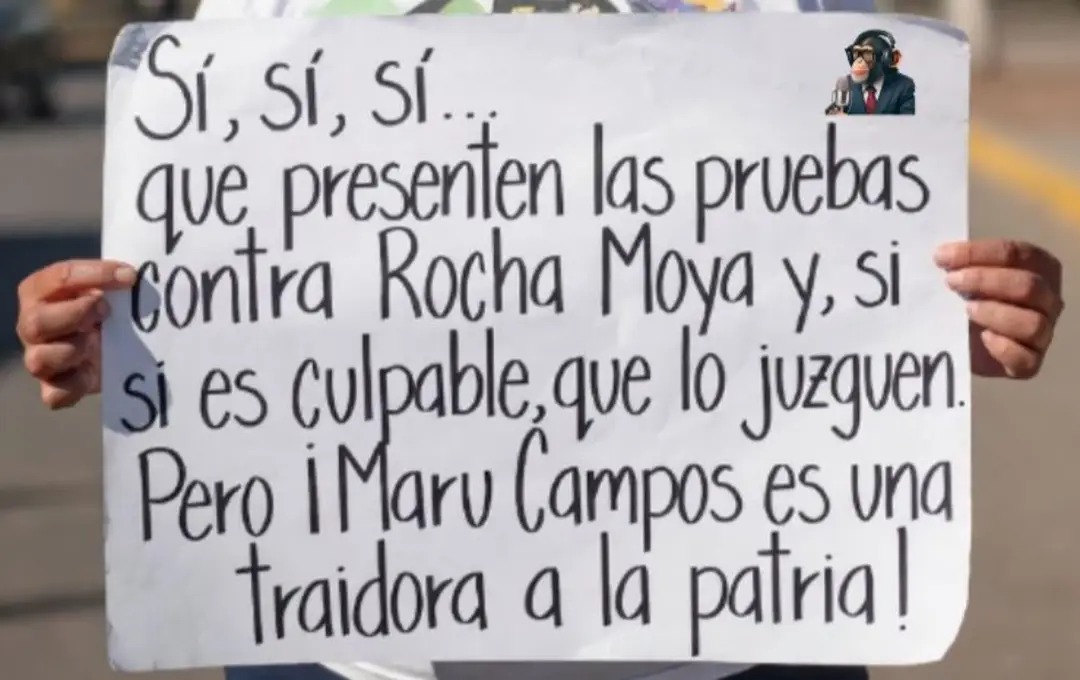 Sí, sí, sí...
que presenten las pruebas
contra Rocha Moya y, si
si es culpable, que lo juzguen.
Pero ¡Maru Campos es una
traidora a la patria!